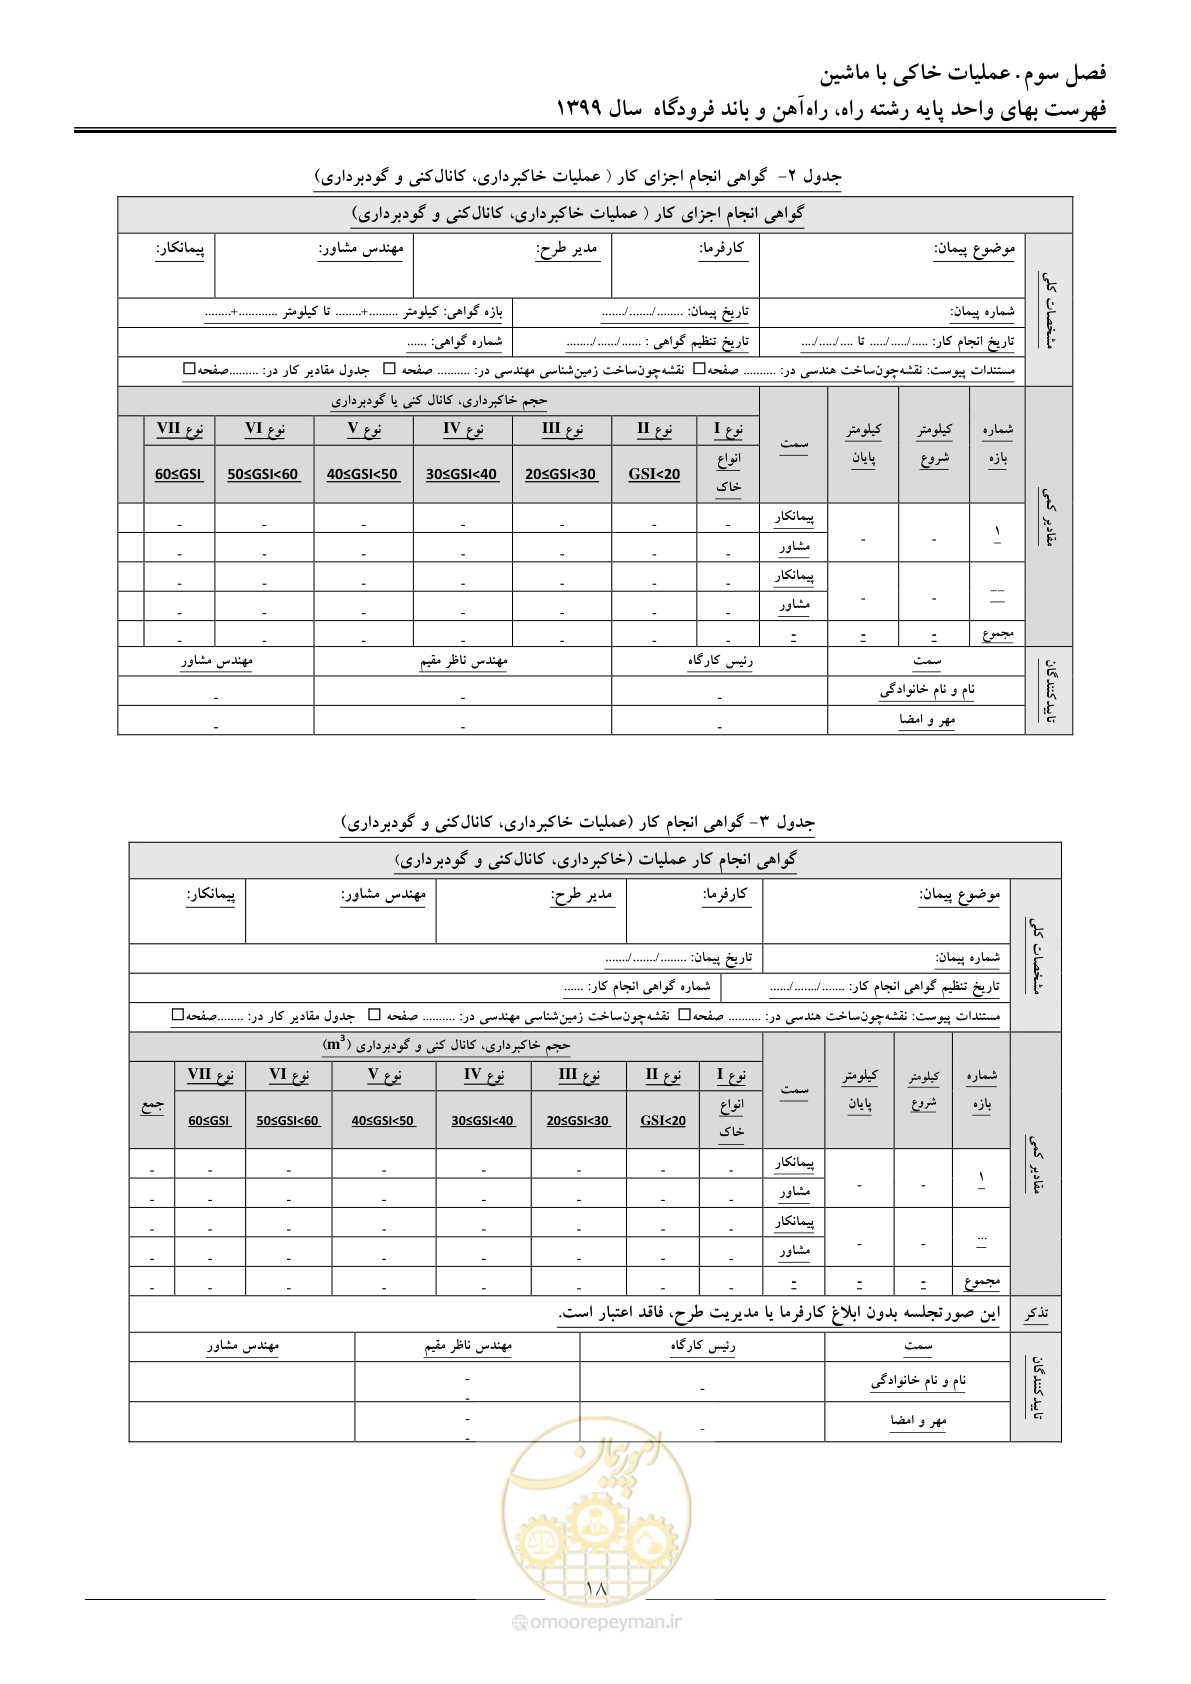 فصل سوم. عملیات خاکی با ماشین
فهرست بهای واحد پایه رشته راه، راه‌آهن و باند فرودگاه سال ۱۳۹۹
جدول ۲- گواهی انجام اجزای کار ( عملیات خاکبرداری، کانال‌کنی و گودبرداری)
گواهی انجام اجزای کار ( عملیات خاکبرداری، کانال‌کنی و گودبرداری)
مشخصات کلی
موضوع پیمان: کارفرما: مدیر طرح: مهندس مشاور: پیمانکار:
شماره پیمان: تاریخ پیمان: ......../......./....... بازه گواهی: کیلومتر .........+........ تا کیلومتر ............+........
تاریخ انجام کار: ...../...../..... تا ..../...../.... تاریخ تنظیم گواهی : ....../....../........ شماره گواهی: ......
مستندات پیوست: نقشه‌چون‌ساخت هندسی در: .......... صفحه□ نقشه‌چون‌ساخت زمین‌شناسی مهندسی در: .......... صفحه □ جدول مقادیر کار در: .........صفحه□
مقادیر کمی
شماره بازه کیلومتر شروع کیلومتر پایان سمت حجم خاکبرداری، کانال کنی یا گودبرداری
نوع I نوع II نوع III نوع IV نوع V نوع VI نوع VII
انواع خاک GSI<20 20≤GSI<30 30≤GSI<40 40≤GSI<50 50≤GSI<60 60≤GSI
۱ - - پیمانکار - - - - - - -
مشاور - - - - - - -
-- - - پیمانکار - - - - - - -
مشاور - - - - - - -
مجموع - - - - - - - - - -
تاییدکنندگان
سمت رئیس کارگاه مهندس ناظر مقیم مهندس مشاور
نام و نام خانوادگی - - -
مهر و امضا - - -
جدول ۳- گواهی انجام کار (عملیات خاکبرداری، کانال‌کنی و گودبرداری)
گواهی انجام کار عملیات (خاکبرداری، کانال‌کنی و گودبرداری)
مشخصات کلی
موضوع پیمان: کارفرما: مدیر طرح: مهندس مشاور: پیمانکار:
شماره پیمان: تاریخ پیمان: ......../......./.......
تاریخ تنظیم گواهی انجام کار: ......./......./...... شماره گواهی انجام کار: ......
مستندات پیوست: نقشه‌چون‌ساخت هندسی در: .......... صفحه□ نقشه‌چون‌ساخت زمین‌شناسی مهندسی در: .......... صفحه □ جدول مقادیر کار در: ........صفحه□
مقادیر کمی
شماره بازه کیلومتر شروع کیلومتر پایان سمت حجم خاکبرداری، کانال کنی و گودبرداری (m³)
نوع I نوع II نوع III نوع IV نوع V نوع VI نوع VII جمع
انواع خاک GSI<20 20≤GSI<30 30≤GSI<40 40≤GSI<50 50≤GSI<60 60≤GSI
۱ - - پیمانکار - - - - - - - -
مشاور - - - - - - - -
... - - پیمانکار - - - - - - - -
مشاور - - - - - - - -
مجموع - - - - - - - - - - -
تذکر این صورتجلسه بدون ابلاغ کارفرما یا مدیریت طرح، فاقد اعتبار است.
تاییدکنندگان
سمت رئیس کارگاه مهندس ناظر مقیم مهندس مشاور
نام و نام خانوادگی - - -
مهر و امضا - - -
امور پیمان
۱۸
omoorepeyman.ir